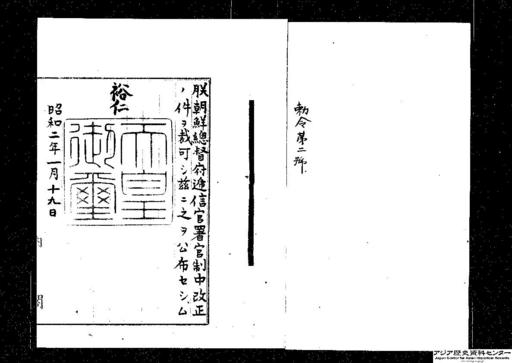 勅令第二號
朕朝鮮總督府遞信官署官制中改正
ノ件ヲ裁可シ茲ニ之ヲ公布セシム
裕仁
天皇御璽
昭和二年一月十九日
内閣
アジア歴史資料センター
Japan Center for Asian Historical Records